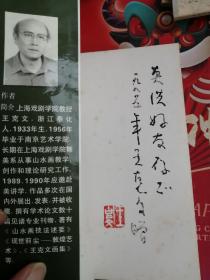 作者
简介 上海戏剧学院教授
王克文，浙江奉化
人。1933年生，1956年
毕业于南京艺术学院
长期在上海戏剧学院舞
美系从事山水画教学、
创作和理论研究工作。
1989、1990年应邀赴
美讲学，作品多次在国
内外展出、发表、并被收
藏，撰有学术论文数十
篇见诸专业刊物，著有
《山水画技法述要》
《现世荷尘——敦煌艺
术》、《王克文画集》
等
好友存正
一九九五年
王克文